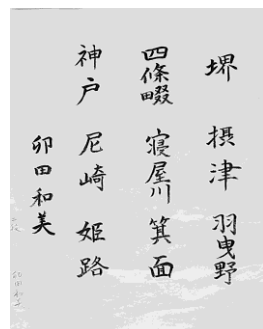 堺 摂津 羽曳野
四條畷 寝屋川 箕面
神戸 尼崎 姫路
卯田和美